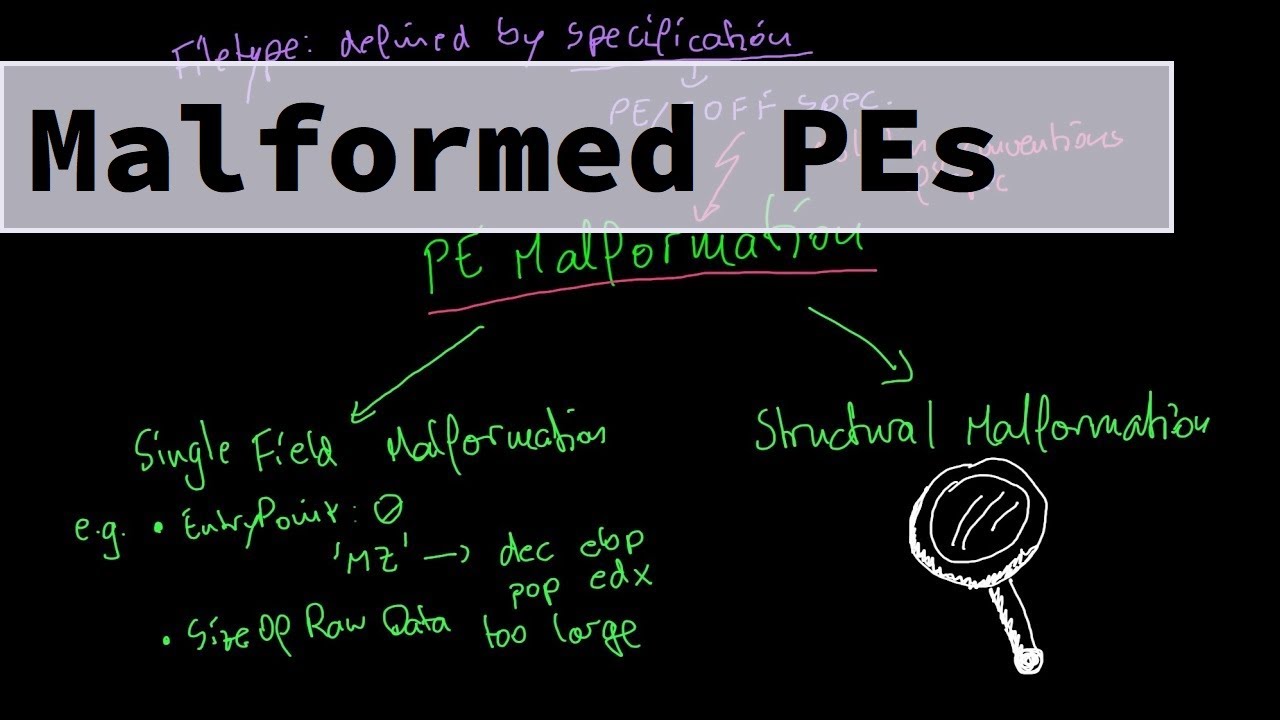 Filetype: defined by specification
PE/COFF spec.
Malformed PEs
PE Malformation
Single Field Malformation
Structural Malformation
e.g. • EntryPoint: 0
'MZ' → dec ebp
pop edx
• SizeOf Raw Data too large